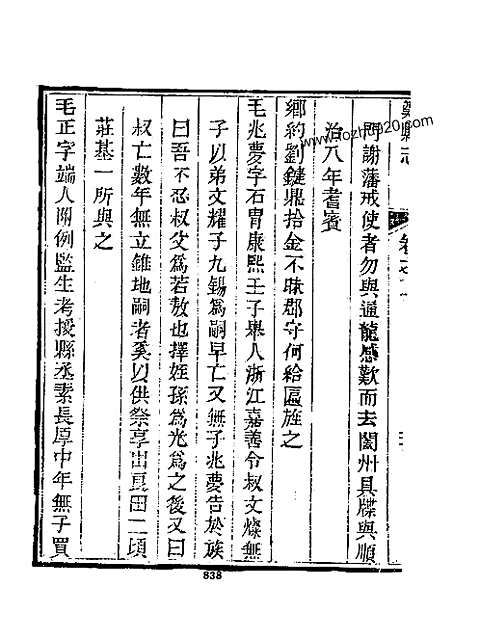 閉謝藩戒使者勿與通龍感歎而去闔州具牒與順
治八年耆賓
鄉約劉鍵鼎拾金不昧郡守何給匾旌之
毛兆夢字石胄康熙壬子舉人浙江嘉善令叔文燦無
子以弟文耀子九錫為嗣早亡又無子兆夢告於族
曰吾不忍叔父為若敖也擇姪孫為光為之後又曰
叔亡數年無立錐地嗣者奚以供祭享出良田二頃
莊基一所與之
毛正字端人閣例監生考授縣丞素長厚中年無子買
838